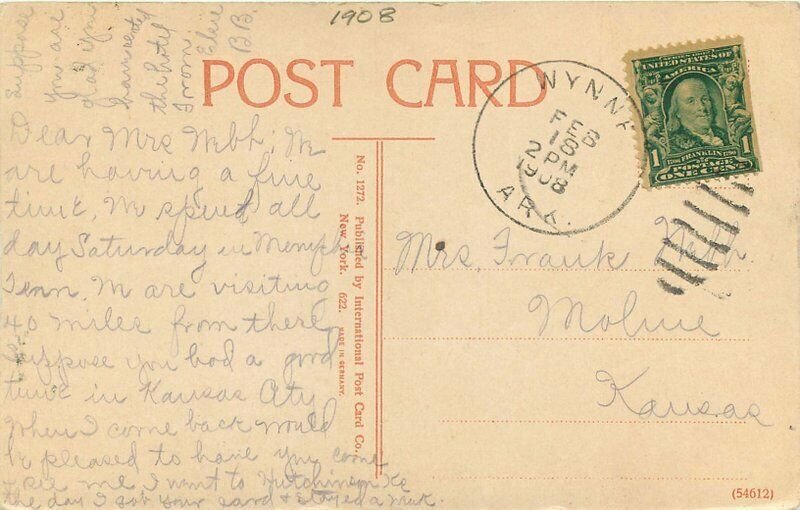 1908
POST CARD
WYNNE
FEB
18
2 PM
1908
ARK.
UNITED STATES OF
AMERICA
1 FRANKLIN 1
POSTAGE
ONE CENT
Dear Mrs Webb: We
are having a fine
time. We spent all
day Saturday in Memphis,
Tenn. We are visiting
40 miles from there
Suppose you had a good
time in Kansas City
When I come back would
be pleased to have you come
& see me I went to Hutchinson Ks
the day I got your card & stayed a week.
Suppose
you are
glad you
have rented
the hotel
From
Elsie
B B.
No. 1272. Published by International Post Card Co.,
New York. 622. MADE IN GERMANY.
Mrs. Frank Webb
Moline
Kansas
(54612)